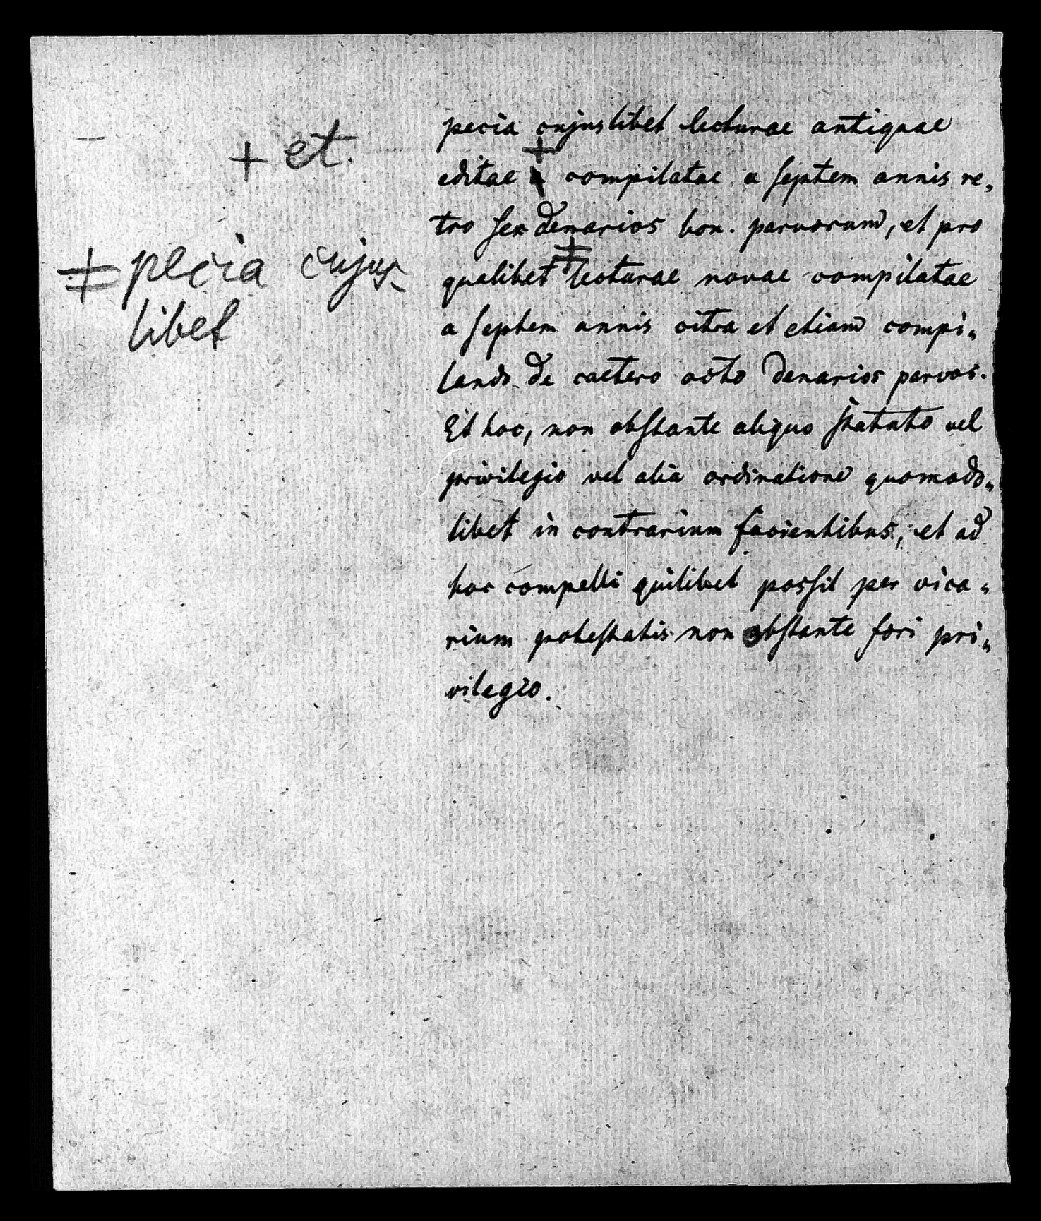 + et.
‡ pecia cujus-
libet
pecia cujuslibet lecturae antiquae
editae + compilatae a septem annis re-
tro sex denarios bon. parvorum, et pro
qualibet ‡ lecturae novae compilatae
a septem annis citra et etiam compi-
lands de caetero octo denarios parvos.
Et hoc, non obstante aliquo statuto vel
privilegio vel alia ordinatione quomodo-
libet in contrarium facientibus, et ad
hoc compelli quilibet possit per vica-
rium potestatis non obstante fori pri-
vilegio.